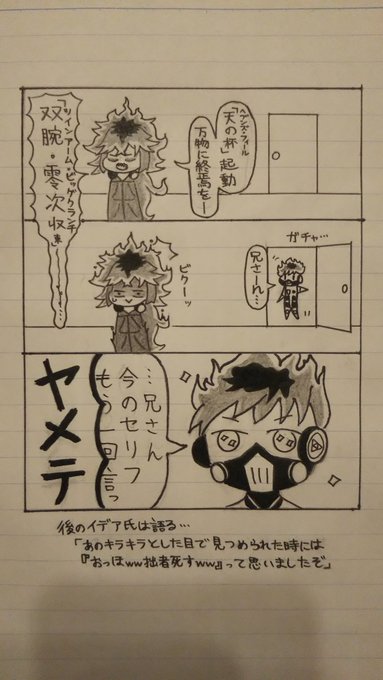 「天の杯」起動
ヘブンズ・フィール
万物に終焉を―
「双腕・零次収束
ツインアーム・ビッグクランチ
ガチャ…
兄さーん…
ビクーッ
…兄さん
今のセリフ
もう一回言っ
ヤメテ
後のイデア氏は語る…
「あのキラキラとした目で見つめられた時には
『おっほww拙者死すww』って思いましたぞ」